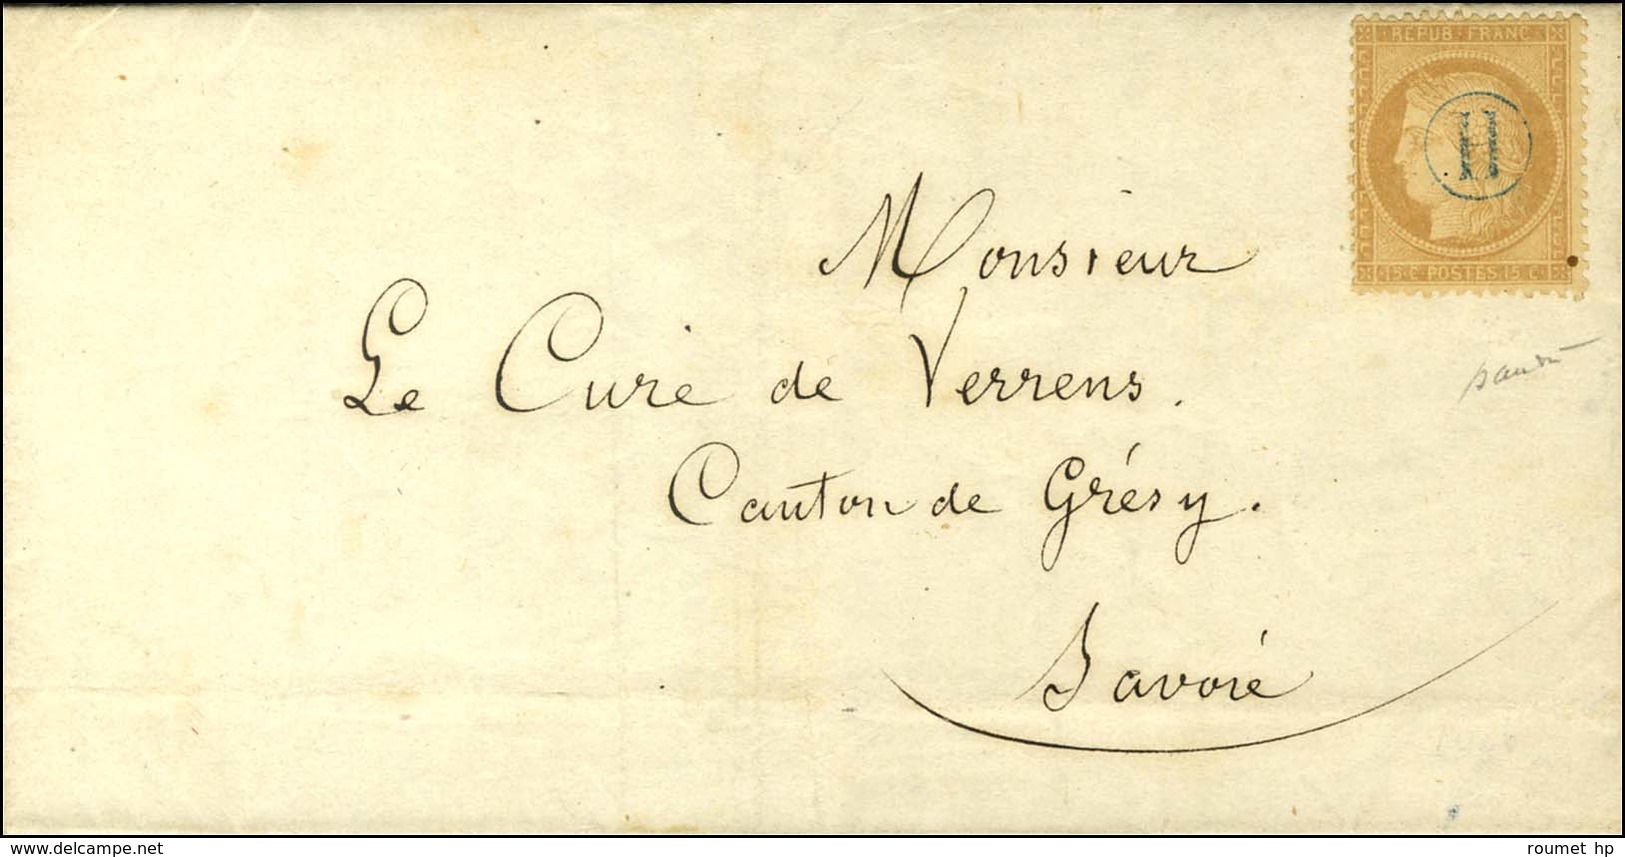 REPUB. FRANC.
H
15 C. POSTES. 15 C.
Monsieur
Le Curé de Verrens.
Canton de Grésy.
Savoié
www.delcampe.net
roumet hp